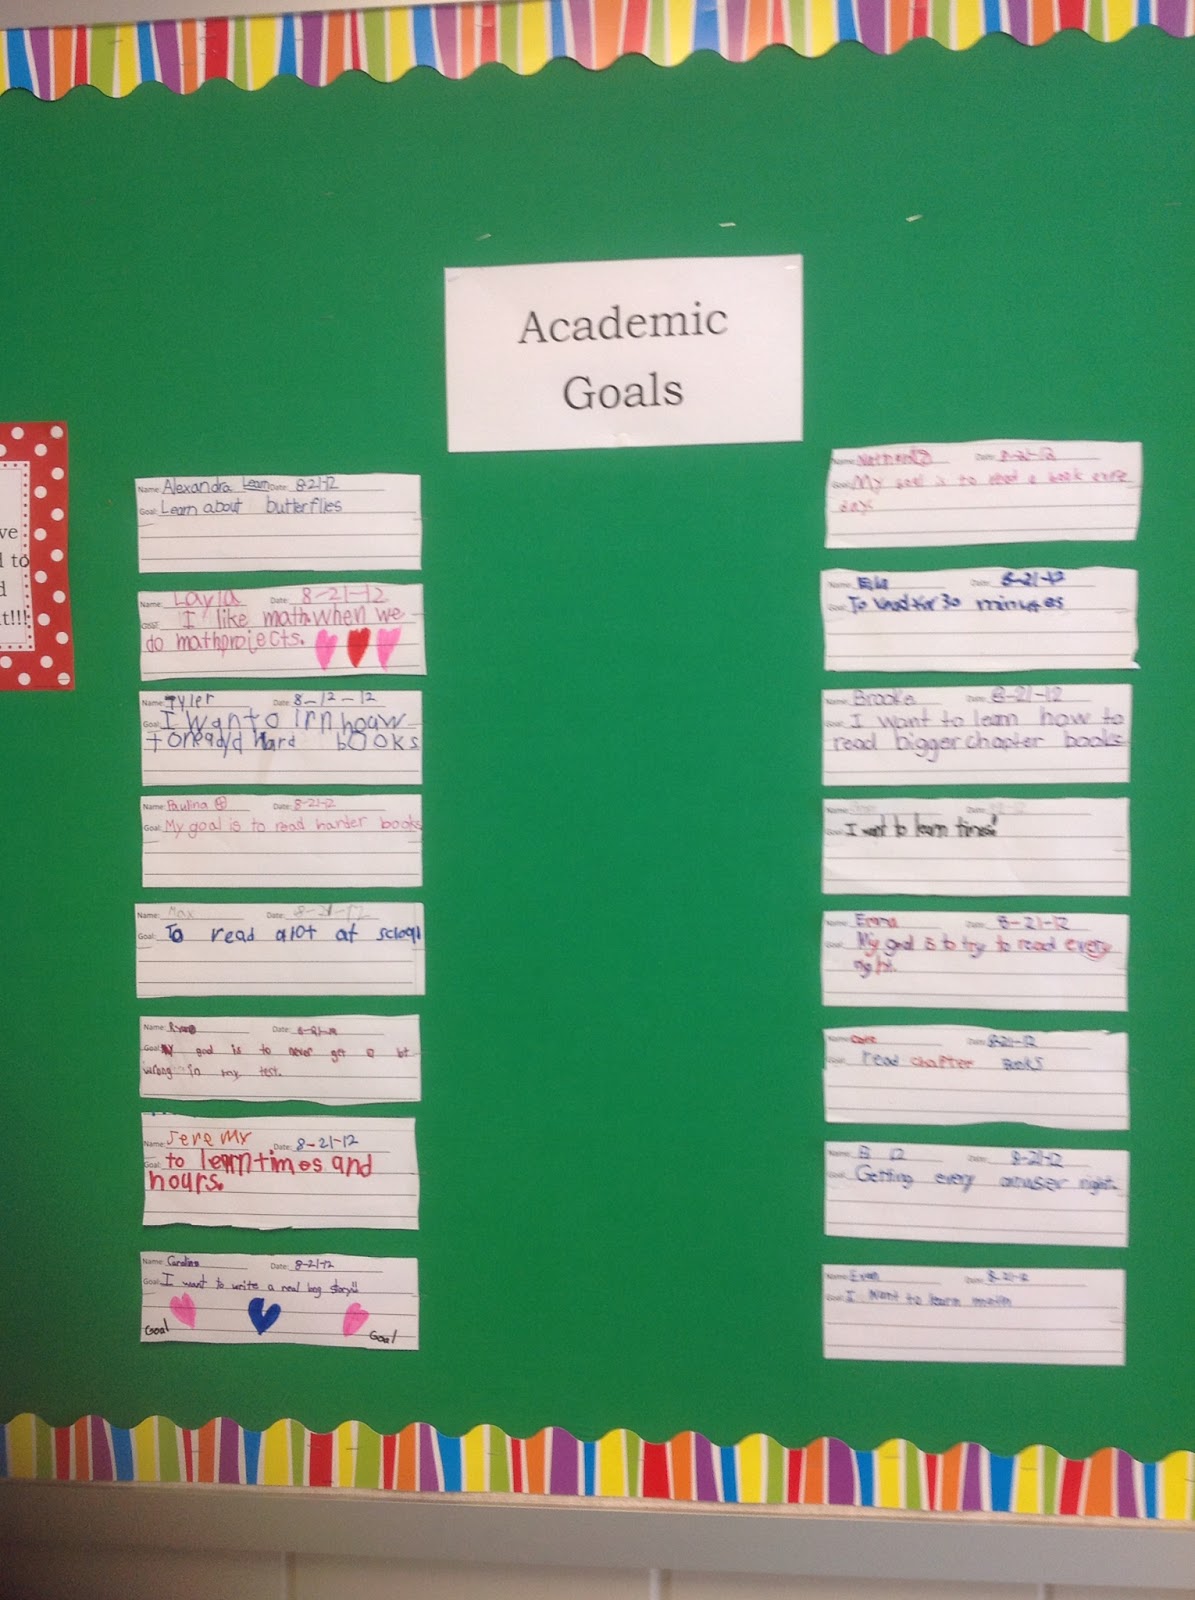 Academic
Goals
ve
to
t!!!
Name: Alexandra Learn Date: 8-21-12
Goal: Learn about butterflies
Name: Layla Date: 8-21-12
Goal: I like math when we
do math projects.
Name: Tyler Date: 8-12-12
Goal: I Wanto lrn houw
toread/d hard books
Name: Paulina Date: 8-21-12
Goal: My goal is to read harder books
Name: Max Date: 8-21-12
Goal: To read alot at scloql
Name: Ryan Date:
Goal: My goal is to never get a lot
wrong in my test.
Name: Jeremy Date: 8-21-12
Goal: to learn times and
hours.
Name: Carolina Date: 8-21-12
Goal: I want to write a real long story!!
Goal Goal
Name: Date: 8-21-12
Goal: My goal is to read a book
day.
Name: Ella Date: 8-21-12
Goal: To read for 30 minutes
Name: Brooke Date: 8-21-12
Goal: I want to learn how to
read bigger chapter books
Name: Date:
Goal: I want to learn times!
Name: Emma Date: 8-21-12
Goal: My goal is to try to read every
night.
Name: Date: 8-21-12
Goal: read chapter books
Name: Date: 8-21-12
Goal: Getting every right.
Name: Evan Date: 8-21-12
Goal: I Want to learn math